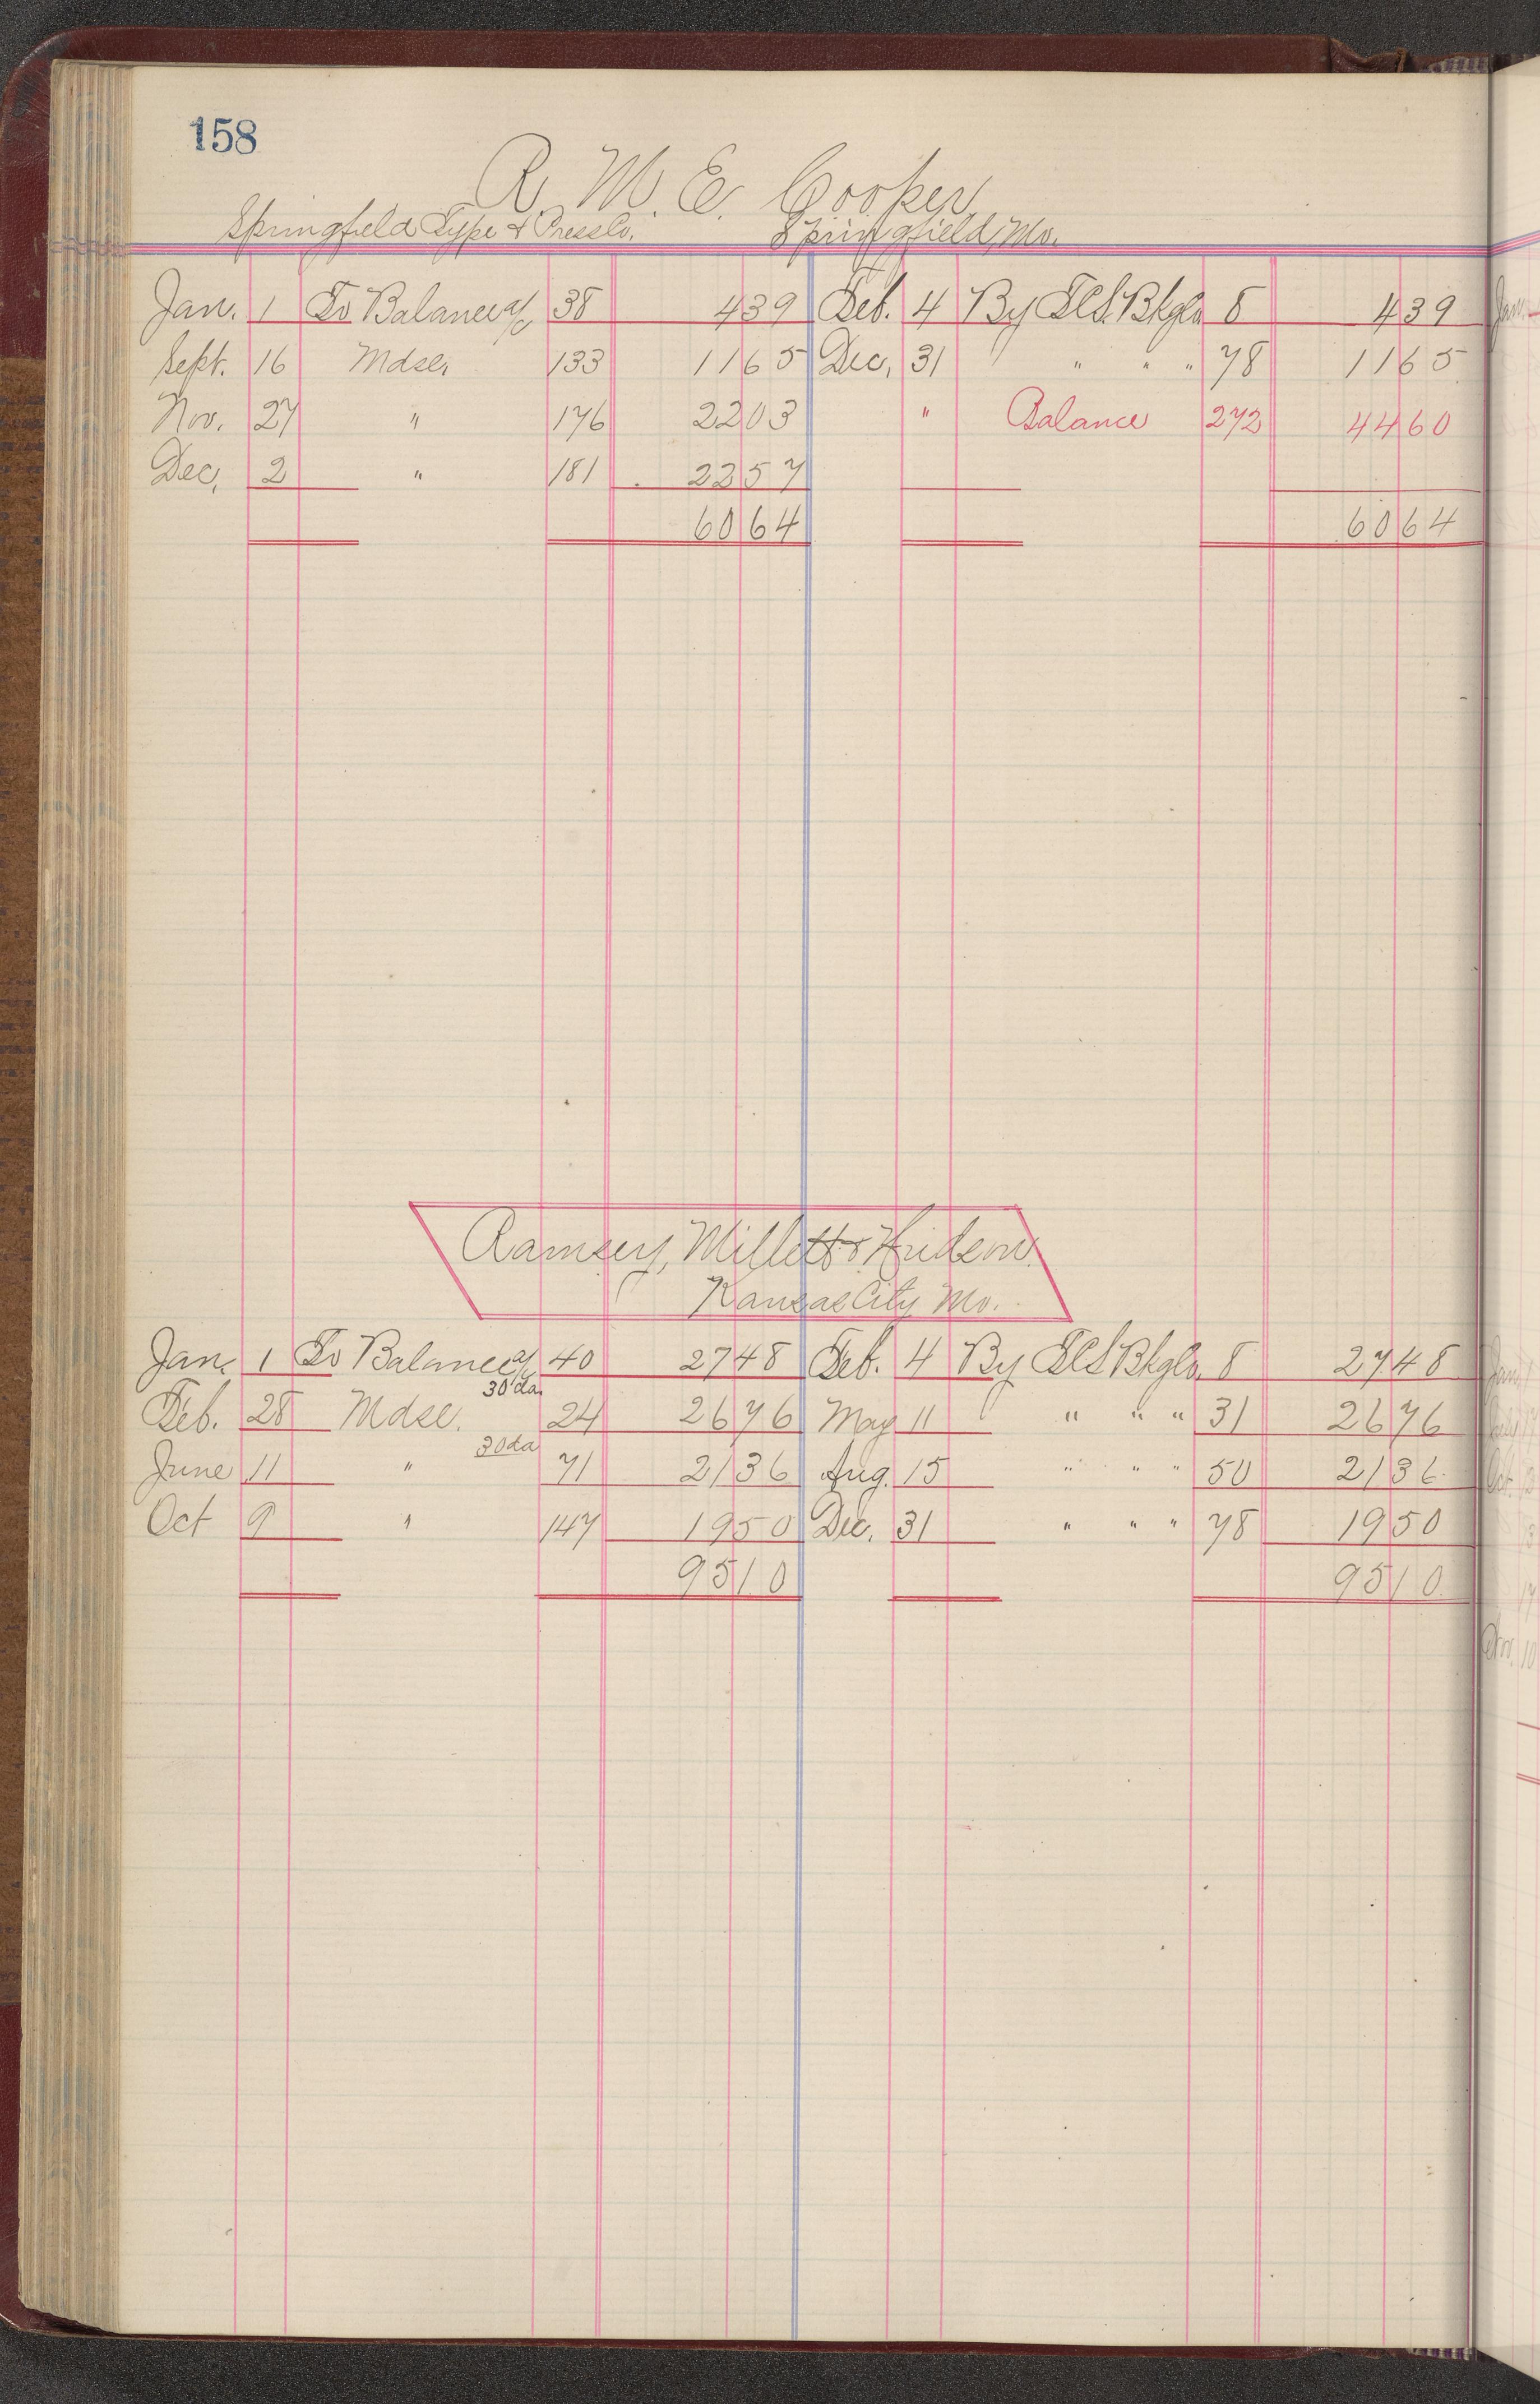 158
R. M. E. Cooper
Springfield Type & Press Co. Springfield, Mo.
Jan. 1 To Balance a/c 38 4 39 Feb. 4 By 8 4 39
Sept. 16 Mdse. 133 11 65 Dec. 31 " " " 78 11 65
Nov. 27 " 176 22 03 " Balance 272 44 60
Dec. 2 " 181 22 57
60 64 60 64
Ramsey, Millett & Hudson
Kansas City, Mo.
Jan. 1 To Balance a/c 40 27 48 Feb. 4 By 8 27 48
30 da.
Feb. 28 Mdse. 24 26 76 May 11 " " " 31 26 76
30 da
June 11 " 71 21 36 Aug. 15 " " " 50 21 36
Oct 9 " 147 19 50 Dec. 31 " " " 78 19 50
95 10 95 10